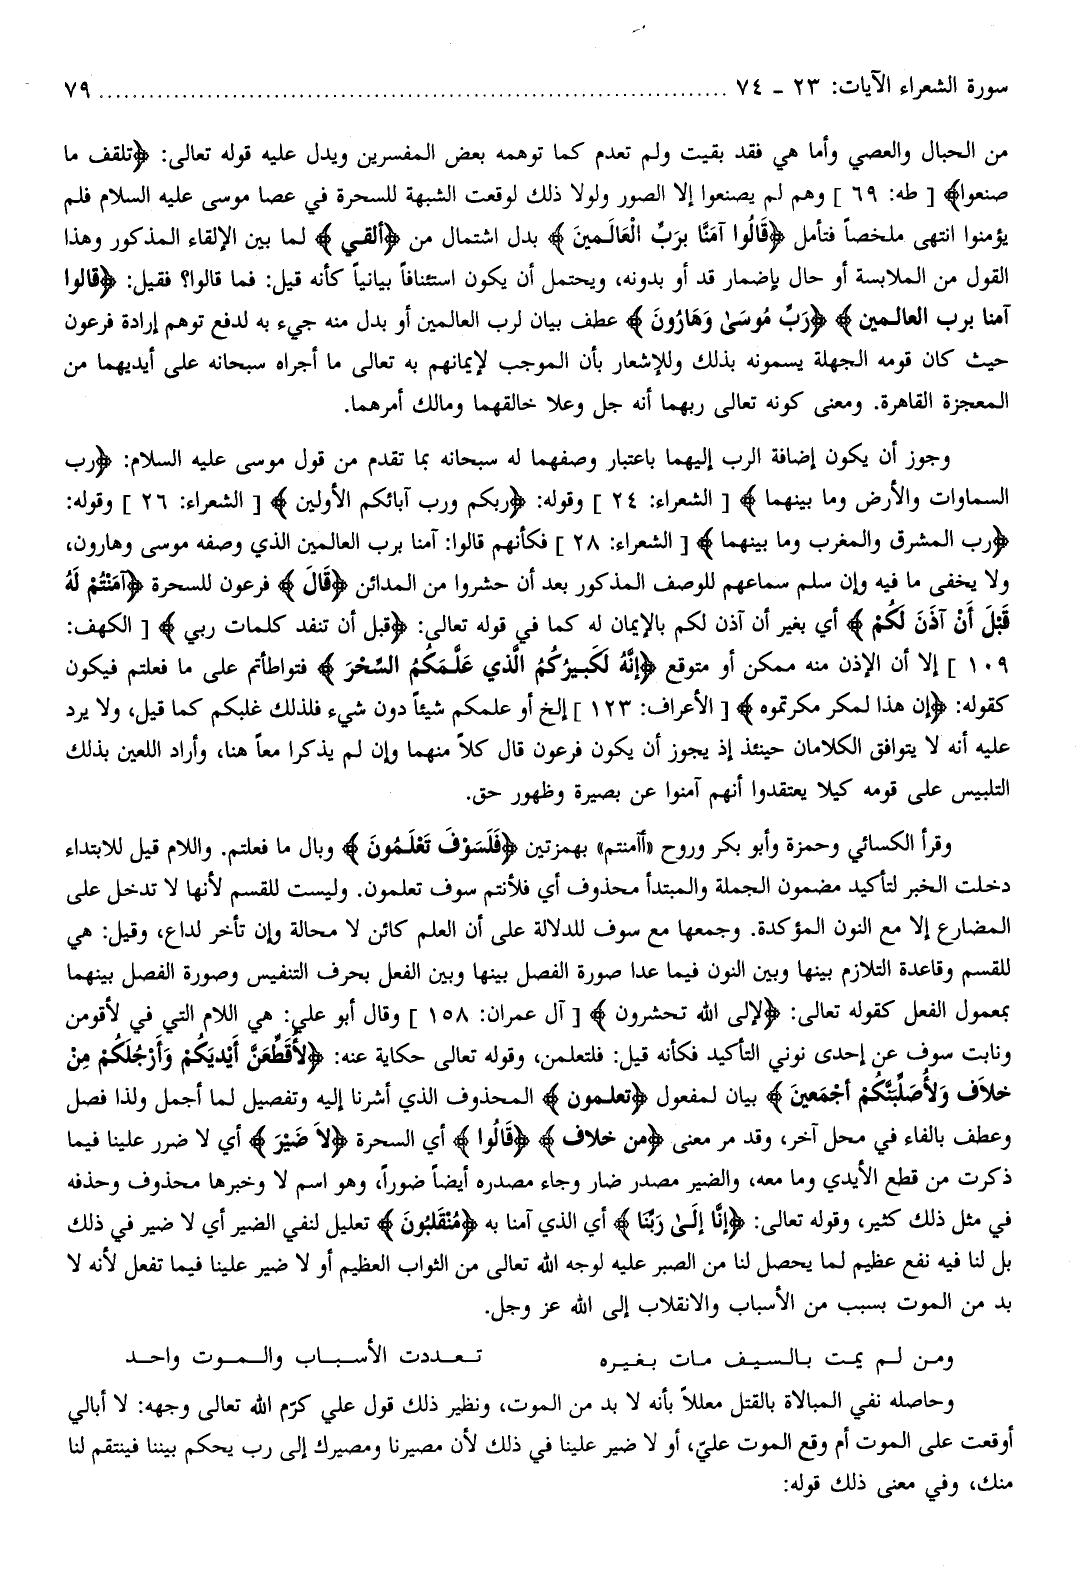 سورة الشعراء الآيات: ٢٣ ـ ٧٤ ........................................................................ ٧٩
من الحبال والعصي وأما هي فقد بقيت ولم تعدم كما توهمه بعض المفسرين ويدل عليه قوله تعالى: ﴿تلقف ما
صنعوا﴾ [ طه: ٦٩ ] وهم لم يصنعوا إلا الصور ولولا ذلك لوقعت الشبهة للسحرة في عصا موسى عليه السلام فلم
يؤمنوا انتهى ملخصاً فتأمل ﴿قَالُوا آمَنَّا بِرَبِّ الْعَالَمِينَ ﴾ بدل اشتمال من ﴿ألقي ﴾ لما بين الإلقاء المذكور وهذا
القول من الملابسة أو حال بإضمار قد أو بدونه، ويحتمل أن يكون استئنافاً بيانياً كأنه قيل: فما قالوا؟ فقيل: ﴿قالوا
آمنا برب العالمين ﴾ ﴿رَبِّ مُوسَىٰ وَهَارُونَ ﴾ عطف بيان لرب العالمين أو بدل منه جيء به لدفع توهم إرادة فرعون
حيث كان قومه الجهلة يسمونه بذلك وللإشعار بأن الموجب لإيمانهم به تعالى ما أجراه سبحانه على أيديهما من
المعجزة القاهرة. ومعنى كونه تعالى ربهما أنه جل وعلا خالقهما ومالك أمرهما.
وجوز أن يكون إضافة الرب إليهما باعتبار وصفهما له سبحانه بما تقدم من قول موسى عليه السلام: ﴿رب
السماوات والأرض وما بينهما ﴾ [ الشعراء: ٢٤ ] وقوله: ﴿ربكم ورب آبائكم الأولين ﴾ [ الشعراء: ٢٦ ] وقوله:
﴿رب المشرق والمغرب وما بينهما ﴾ [ الشعراء: ٢٨ ] فكأنهم قالوا: آمنا برب العالمين الذي وصفه موسى وهارون،
ولا يخفى ما فيه وإن سلم سماعهم للوصف المذكور بعد أن حشروا من المدائن ﴿قَالَ ﴾ فرعون للسحرة ﴿آمَنْتُمْ لَهُ
قَبْلَ أَنْ آذَنَ لَكُمْ ﴾ أي بغير أن آذن لكم بالإيمان له كما في قوله تعالى: ﴿قبل أن تنفد كلمات ربي ﴾ [ الكهف:
١٠٩ ] إلا أن الإذن منه ممكن أو متوقع ﴿إنَّهُ لَكَبِيرُكُمُ الَّذي عَلَّمَكُمُ السِّحْرَ ﴾ فتواطأتم على ما فعلتم فيكون
كقوله: ﴿إن هذا لمكر مكرتموه ﴾ [ الأعراف: ١٢٣ ] إلخ أو علمكم شيئاً دون شيء فلذلك غلبكم كما قيل، ولا يرد
عليه أنه لا يتوافق الكلامان حينئذ إذ يجوز أن يكون فرعون قال كلاً منهما وإن لم يذكرا معاً هنا، وأراد اللعين بذلك
التلبيس على قومه كيلا يعتقدوا أنهم آمنوا عن بصيرة وظهور حق.
وقرأ الكسائي وحمزة وأبو بكر وروح «أآمنتم» بهمزتين ﴿فَلَسَوْفَ تَعْلَمُونَ ﴾ وبال ما فعلتم. واللام قيل للابتداء
دخلت الخبر لتأكيد مضمون الجملة والمبتدأ محذوف أي فلأنتم سوف تعلمون. وليست للقسم لأنها لا تدخل على
المضارع إلا مع النون المؤكدة. وجمعها مع سوف للدلالة على أن العلم كائن لا محالة وإن تأخر لداع، وقيل: هي
للقسم وقاعدة التلازم بينها وبين النون فيما عدا صورة الفصل بينها وبين الفعل بحرف التنفيس وصورة الفصل بينهما
بمعمول الفعل كقوله تعالى: ﴿لإلى الله تحشرون ﴾ [ آل عمران: ١٥٨ ] وقال أبو علي: هي اللام التي في لأقومن
ونابت سوف عن إحدى نوني التأكيد فكأنه قيل: فلتعلمن، وقوله تعالى حكاية عنه: ﴿لأُقَطِّعَنَّ أَيْدِيَكُمْ وَأَرْجُلَكُمْ مِنْ
خلاَف وَلأُصَلِّبَنَّكُمْ أَجْمَعينَ ﴾ بيان لمفعول ﴿تعلمون ﴾ المحذوف الذي أشرنا إليه وتفصيل لما أجمل ولذا فصل
وعطف بالفاء في محل آخر، وقد مر معنى ﴿من خلاف ﴾ ﴿قَالُوا ﴾ أي السحرة ﴿لاَ ضَيْرَ ﴾ أي لا ضرر علينا فيما
ذكرت من قطع الأيدي وما معه، والضير مصدر ضار وجاء مصدره أيضاً ضوراً، وهو اسم لا وخبرها محذوف وحذفه
في مثل ذلك كثير، وقوله تعالى: ﴿إنَّا إلَىٰ رَبِّنَا ﴾ أي الذي آمنا به ﴿مُنْقَلبُونَ ﴾ تعليل لنفي الضير أي لا ضير في ذلك
بل لنا فيه نفع عظيم لما يحصل لنا من الصبر عليه لوجه الله تعالى من الثواب العظيم أو لا ضير علينا فيما تفعل لأنه لا
بد من الموت بسبب من الأسباب والانقلاب إلى الله عز وجل.
ومن لم يمت بالسيف مات بغيره تعددت الأسباب والموت واحد
وحاصله نفي المبالاة بالقتل معللاً بأنه لا بد من الموت، ونظير ذلك قول علي كرّم الله تعالى وجهه: لا أبالي
أوقعت على الموت أم وقع الموت عليّ، أو لا ضير علينا في ذلك لأن مصيرنا ومصيرك إلى رب يحكم بيننا فينتقم لنا
منك، وفي معنى ذلك قوله: